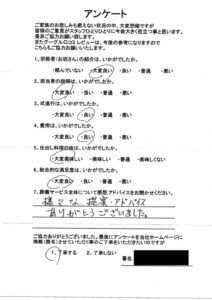 アンケート
ご家族のお悲しみも癒えない状況の中、大変恐縮ですが
皆様のご意見がスタッフひとりひとりに今後大きく役立つ事と思います。
是非ご協力お願いします。
またグーグル口コミレビューは、今後の参考になりますので
こちらもご協力お願いいたします。
1. 宗教者(お坊さん)の紹介は、いかがでしたか。
・頼んでいない ・大変良い ・良い ・普通 ・悪い
2. 担当者の説明は、いかがでしたか。
・大変良い ・良い ・普通 ・悪い
3. 式進行は、いかがでしたか。
・大変良い ・良い ・普通 ・悪い
4. 費用は、いかがでしたか。
・大変良い ・良い ・普通 ・悪い
5. 仕出し料理の味は、いかがでしたか。
・大変美味しい ・美味しい ・普通 ・悪い
6. 総合的な満足度は、いかがでしたか。
・大変良い ・良い ・普通 ・悪い
7. 葬儀サービス全体について感想、アドバイスをお聞かせください。
様々な、提案・アドバイス
ありがとうございました。
ご協力ありがとうございました。最後にアンケートを当社ホームページに
掲載(匿名)させていただく事のご了承をいただきたいのですが
1、了承する 2、了承しない
署名